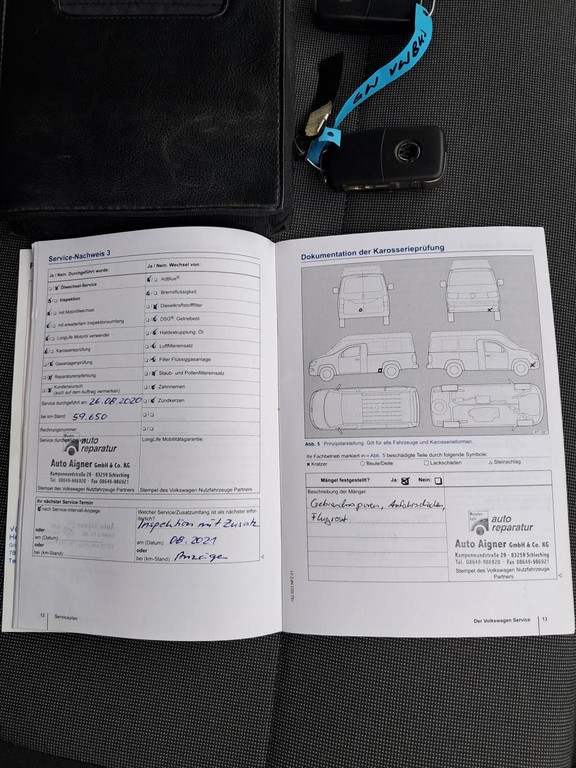 GW VWBus
Service-Nachweis 3
Ja / Nein. Durchgeführt wurde:
Ölwechsel-Service
Inspektion
mit Motorölwechsel
mit erweitertem Inspektionsumfang
LongLife Motoröl verwendet
Karosserieprüfung
Gasanlagenprüfung
Reparaturempfehlung
Kundenwunsch
(auch auf dem Auftrag vermerken)
Service durchgeführt am: 26.08.2020
bei km-Stand: 59.650
Rechnungsnummer:
Service durchgeführt
auto
reparatur
Auto Aigner GmbH & Co. KG
Kampenwandstraße 29 · 83259 Schleching
Tel. 08649-986920 · Fax 08649-986921
Stempel des Volkswagen Nutzfahrzeuge Partners
Ja / Nein. Wechsel von:
AdBlue®
Bremsflüssigkeit
Dieselkraftstofffilter
DSG®. Getriebeöl
Haldexkupplung: Öl
Luftfiltereinsatz
Filter Flüssiggasanlage
Staub- und Pollenfiltereinsatz
Zahnriemen
Zündkerzen
LongLife Mobilitätsgarantie:
Stempel des Volkswagen Nutzfahrzeuge Partners
Ihr nächster Service-Termin
nach Service-Intervall-Anzeige.
oder
am (Datum):
oder
bei (km-Stand):
Welcher Service/Zusatzumfang ist als nächster erforderlich?
Inspektion mit Zusatz
am (Datum): 08.2021
oder
bei (km-Stand): Anzeige
12 Serviceplan
Dokumentation der Karosserieprüfung
Abb. 5 Prinzipdarstellung. Gilt für alle Fahrzeuge und Karosserieformen.
Ihr Fachbetrieb markiert in ⇒ Abb. 5 beschädigte Teile durch folgende Symbole:
× Kratzer ○ Beule/Delle □ Lackschaden △ Steinschlag
Mängel festgestellt? Ja: Nein:
Beschreibung der Mängel:
Gebrauchsspuren, Anfahrschäden,
Flugrost
auto
reparatur
Auto Aigner GmbH & Co. KG
Kampenwandstraße 29 · 83259 Schleching
Tel. 08649-986920 · Fax 08649-986921
Stempel des Volkswagen Nutzfahrzeuge
Partners
Der Volkswagen Service 13